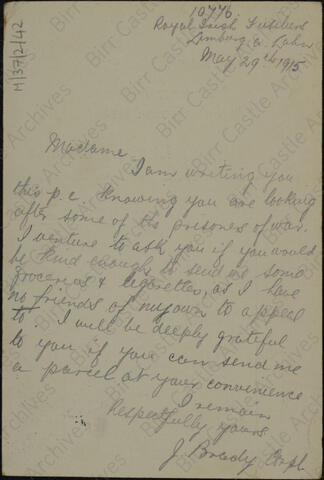 M/37/2/42
10776
Royal Irish Fusiliers
Limburg a. Lahn
May 29th 1915
Madame
I am writing you
this p.c. knowing you are looking
after some of the prisoners of war.
I venture to ask you if you would
be kind enough to send me some
groceries & cigarettes, as I have
no friends of my own to appeal
to. I will be deeply grateful
to you if you can send me
a parcel at your convenience
I remain
Respectfully yours
J. Brady Corpl.
Birr Castle Archives